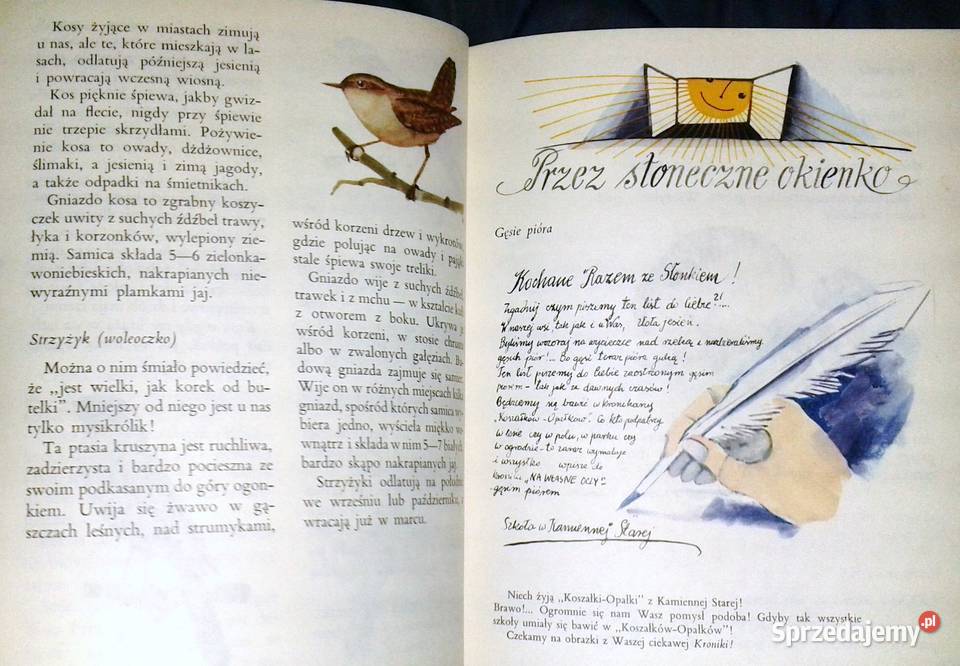 Kosy żyjące w miastach zimują
u nas, ale te, które mieszkają w la-
sach, odlatują późniejszą jesienią
i powracają wczesną wiosną.
Kos pięknie śpiewa, jakby gwiz-
dał na flecie, nigdy przy śpiewie
nie trzepie skrzydłami. Pożywie-
nie kosa to owady, dżdżownice,
ślimaki, a jesienią i zimą jagody,
a także odpadki na śmietnikach.
Gniazdo kosa to zgrabny koszy-
czek uwity z suchych źdźbeł trawy,
łyka i korzonków, wylepiony zie-
mią. Samica składa 5—6 zielonka-
woniebieskich, nakrapianych nie-
wyraźnymi plamkami jaj.
Strzyżyk (woleoczko)
Można o nim śmiało powiedzieć,
że „jest wielki, jak korek od bu-
telki”. Mniejszy od niego jest u nas
tylko mysikrólik!
Ta ptasia kruszyna jest ruchliwa,
zadzierzysta i bardzo pocieszna ze
swoim podkasanym do góry ogon-
kiem. Uwija się żwawo w gą-
szczach leśnych, nad strumykami,
wśród korzeni drzew i wykrotów,
gdzie polując na owady i pająki
stale śpiewa swoje treliki.
Gniazdo wije z suchych źdźbeł
trawek i z mchu — w kształcie kuli
z otworem z boku. Ukrywa je
wśród korzeni, w stosie chrustu
albo w zwalonych gałęziach. Bu-
dową gniazda zajmuje się samiec.
Wije on w różnych miejscach kilka
gniazd, spośród których samica wy-
biera jedno, wyściela miękko we-
wnątrz i składa w nim 5—7 białych,
bardzo skąpo nakrapianych jaj.
Strzyżyki odlatują na południe
we wrześniu lub październiku, a
wracają już w marcu.
Przez słoneczne okienko
Gęsie pióra
Kochane "Razem ze Słonkiem"!
Zgadnij czym piszemy ten list do Ciebie?!...
W naszej wsi, tak jak i u Was, złota jesień.
Byliśmy wczoraj na wycieczce nad rzeką i nazbieraliśmy
gęsich piór!... Bo gęsi teraz pióra gubią!
Ten list piszemy do Ciebie zaostrzonym gęsim
piórem - tak jak za dawnych czasów!
Będziemy się bawić w kronikarzy
„Koszałków-Opałków". Co kto podpatrzy
w lesie czy w polu, w parku czy
w ogrodzie - to zaraz wymaluje
i wszystko wpisze do
kroniki „NA WŁASNE OCZY"
gęsim piórem
Szkoła w "Kamiennej" Starej
Niech żyją „Koszałki-Opałki” z Kamiennej Starej!
Brawo!... Ogromnie się nam Wasz pomysł podoba! Gdyby tak wszystkie
szkoły umiały się bawić w „Koszałków-Opałków”!
Czekamy na obrazki z Waszej ciekawej Kroniki!
Sprzedajemy.pl